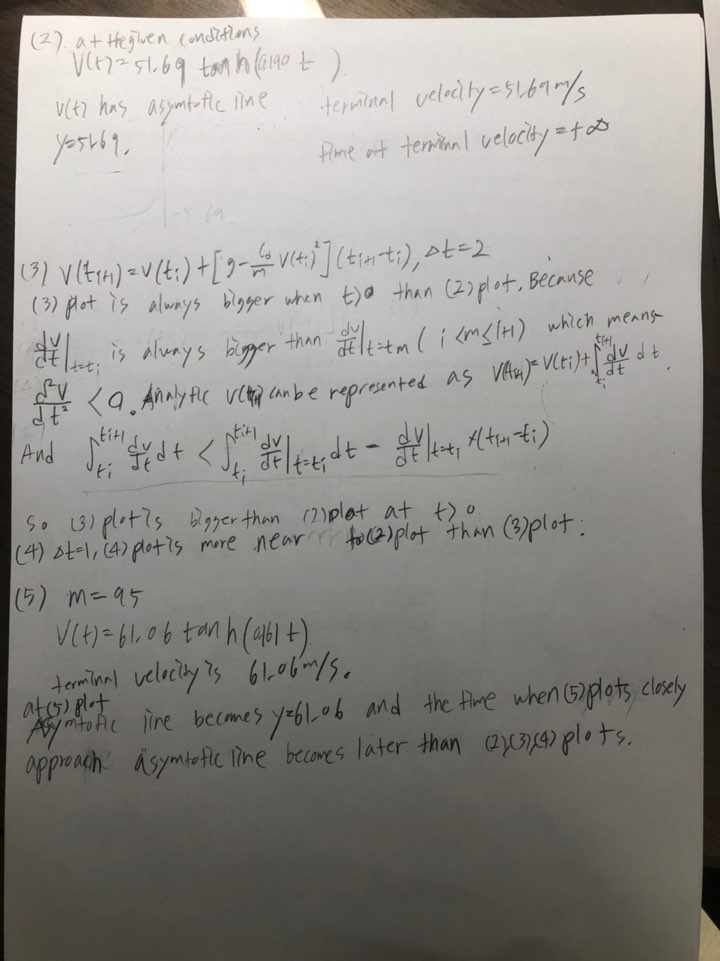 (2). at the given conditions
V(t)=51.69 tanh(0.190 t).
V(t) has asymtotic line terminal velocity=51.69m/s
y=51.69. time at terminal velocity=+∞
(3) V(ti+1)=V(ti)+[g-Cd/m V(ti)²](ti+1-ti), Δt=2
(3) plot is always bigger when t>0 than (2) plot. Because
dV/dt|t=ti is always bigger than dV/dt|t=tm (i<m≤i+1) which means
d²V/dt² <0. Analytic V(t) can be represented as V(ti+1)=V(ti)+∫ti^ti+1 dV/dt dt.
And ∫ti^ti+1 dV/dt dt < ∫ti^ti+1 dV/dt|t=ti dt = dV/dt|t=ti ×(ti+1-ti)
So (3) plot is bigger than (2) plot at t>0
(4) Δt=1, (4) plot is more near to (2) plot than (3) plot.
(5) m=95
V(t)=61.06 tanh(0.161 t)
terminal velocity is 61.06m/s.
at (5) plot
Asymtotic line becomes y=61.06 and the time when (5) plots closely
approach asymtotic line becomes later than (2),(3),(4) plots.